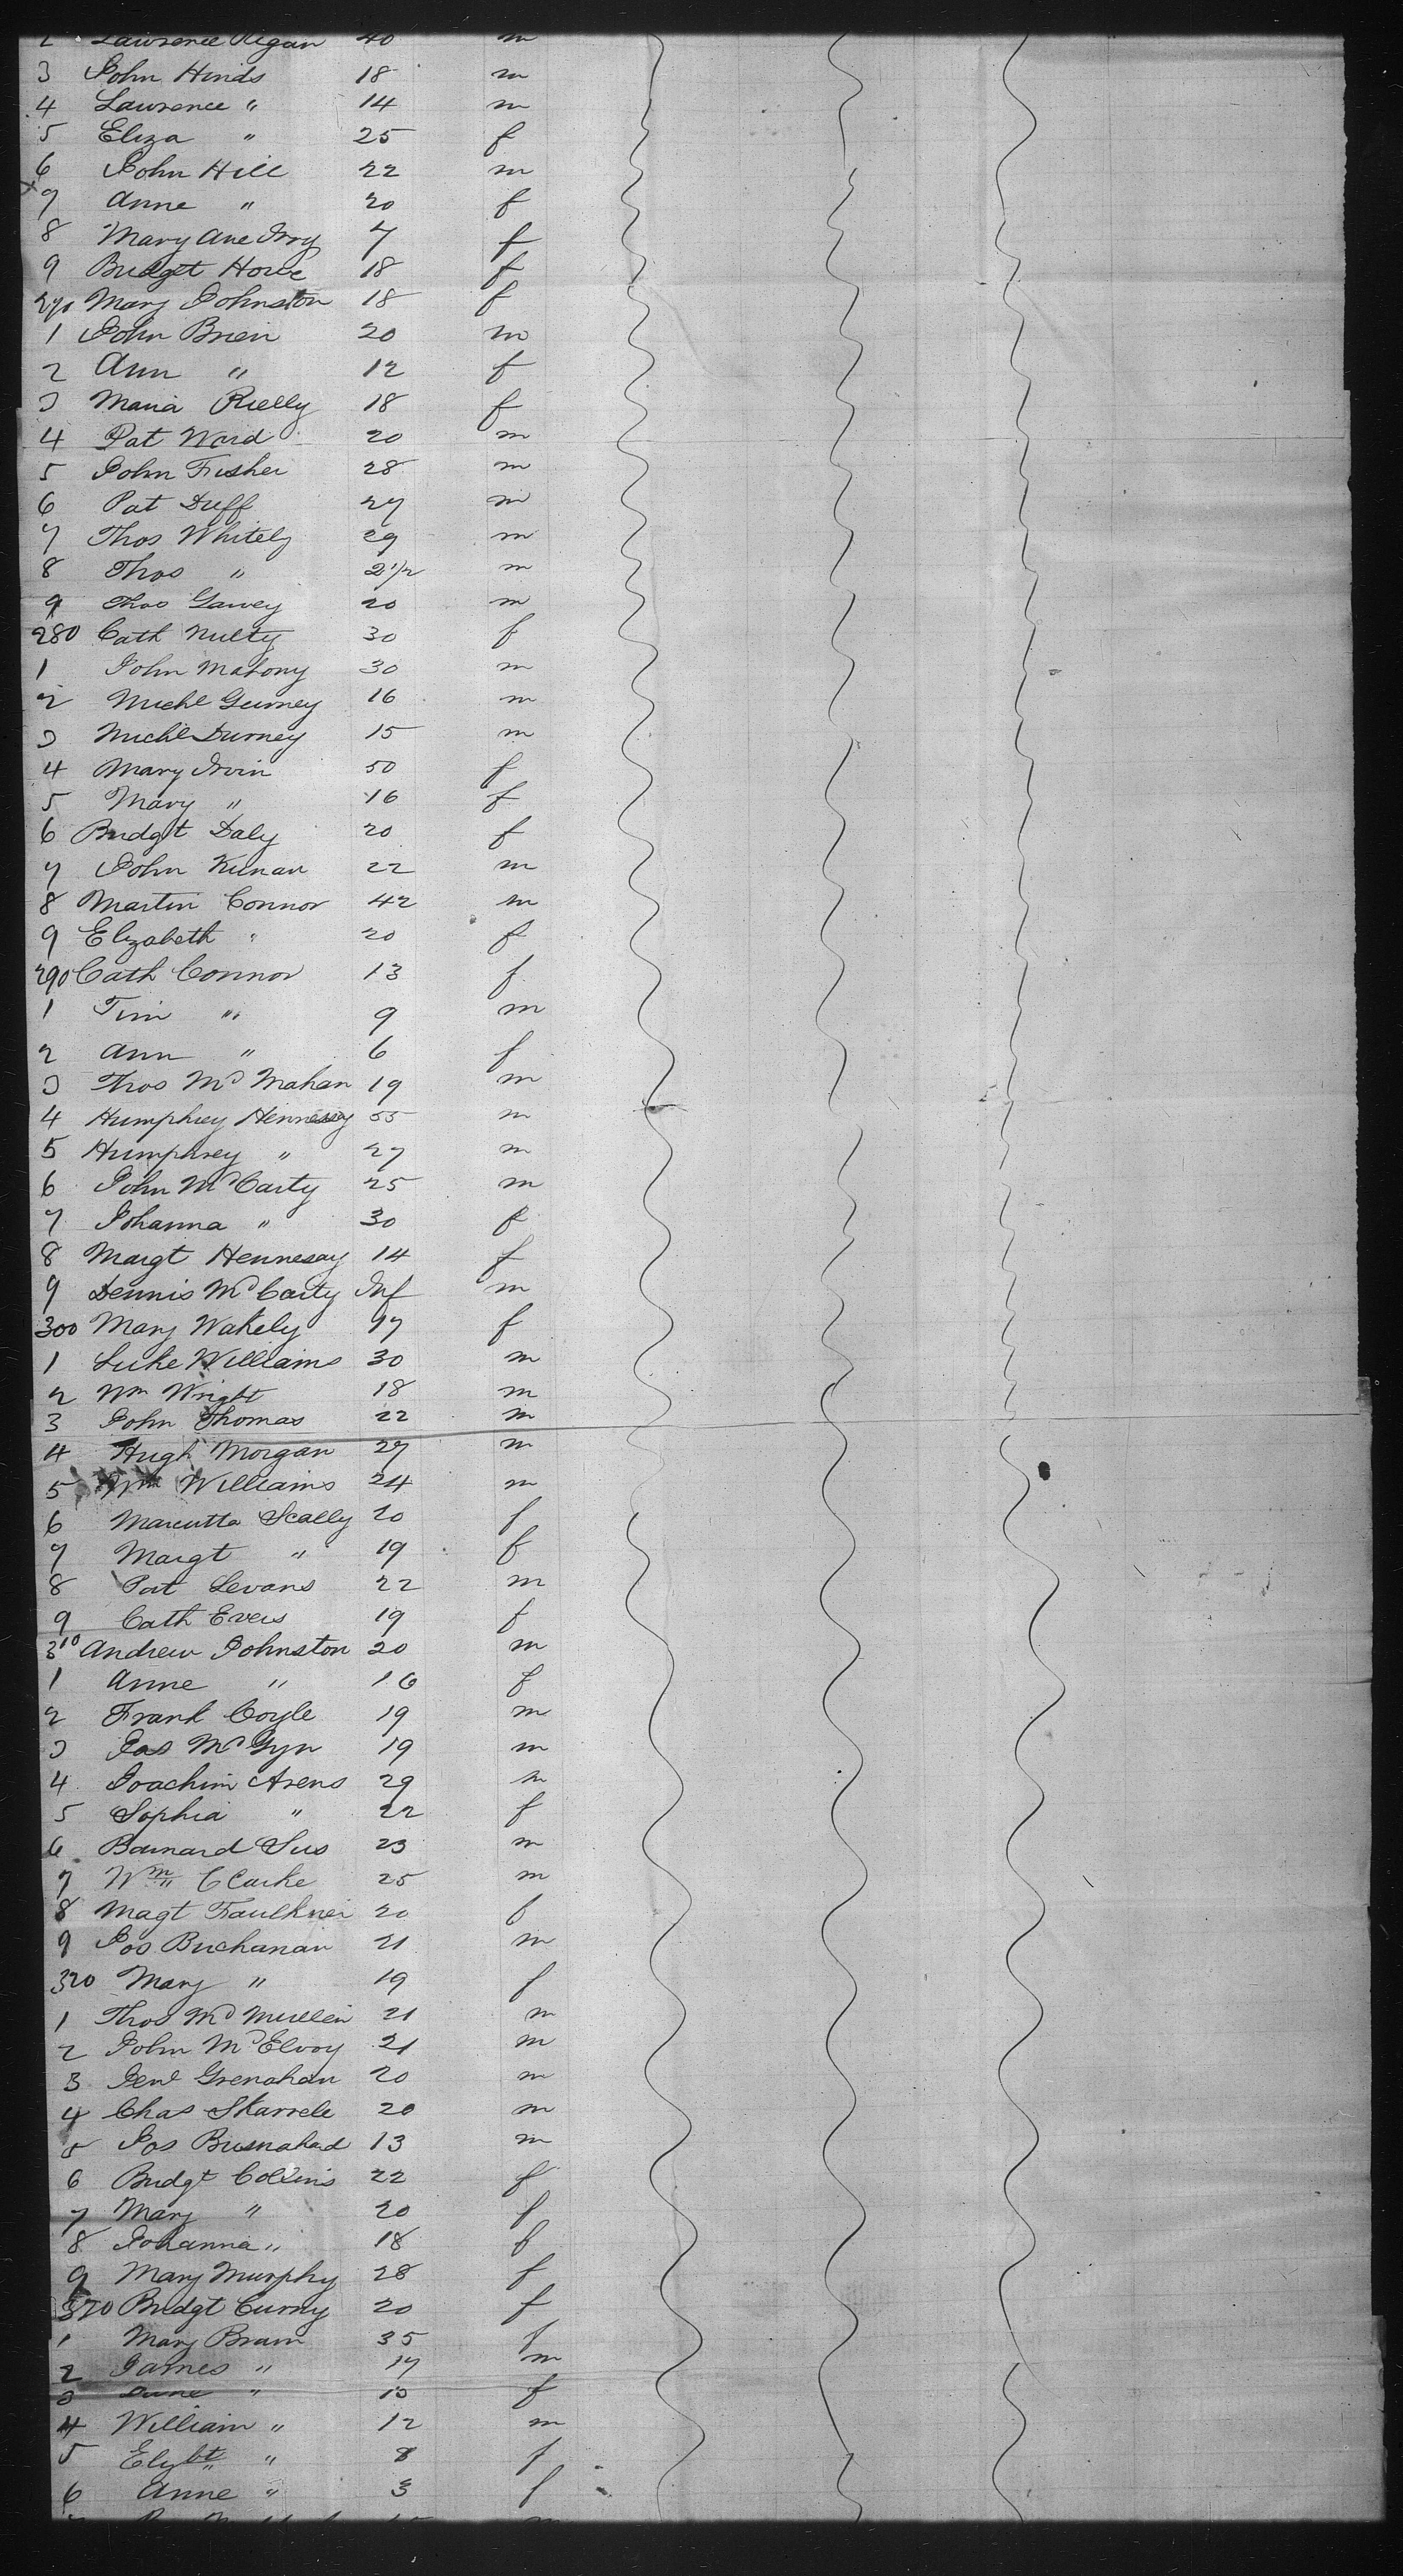 2 Lawrence Regan 40 m
3 John Hinds 18 m
4 Lawrence " 14 m
5 Eliza " 25 f
6 John Hill 22 m
7 Anne " 20 f
8 Mary Ane Ivry 7 f
9 Bridget Howe 18 f
270 Mary Johnston 18 f
1 John Brien 20 m
2 Ann " 12 f
3 Maria Rielly 18 f
4 Pat Ward 20 m
5 John Fisher 28 m
6 Pat Duff 27 m
7 Thos Whitely 29 m
8 Thos " 2 1/2 m
9 Thos Garvey 20 m
280 Cath Nulty 30 f
1 John Mahony 30 m
2 Michl Gurney 16 m
3 Michl Durney 15 m
4 Mary Irvin 50 f
5 Mary " 16 f
6 Bridgt Daly 20 f
7 John Kinan 22 m
8 Martin Connor 42 m
9 Elizabeth " 20 f
290 Cath Connor 13 f
1 Tim " 9 m
2 Ann " 6 f
3 Thos Mc Mahan 19 m
4 Humphrey Hennessy 55 m
5 Humphrey " 27 m
6 John Mc Carty 25 m
7 Johanna " 30 f
8 Margt Hennesay 14 f
9 Dennis Mc Carty Inf m
300 Mary Wakely 17 f
1 Luke Williams 30 m
2 Wm Wright 18 m
3 John Thomas 22 m
4 Hugh Morgan 27 m
5 Wm Williams 24 m
6 Scally 20 f
7 Margt " 19 f
8 Pat Levans 22 m
9 Cath Evers 19 f
310 Andrew Johnston 20 m
1 Anne " 16 f
2 Frank Coyle 19 m
3 Jas Mc Gyn 19 m
4 Joachim Arens 29 m
5 Sophia " 22 f
6 Barnard Sus 23 m
7 Wm Clarke 25 m
8 Magt Faulkner 20 f
9 Jos Buchanan 21 m
320 Mary " 19 f
1 Thos Mc Mullen 21 m
2 John Mc Elvoy 21 m
3 Grenahan 20 m
4 Chas Skarrele 20 m
5 Jos 13 m
6 Bridgt Collins 22 f
7 Mary " 20 f
8 Johanna " 18 f
9 Mary Murphy 28 f
320 Bridgt Curny 20 f
1 Mary Brawn 35 f
2 James " 17 m
3 Jane " 15 f
4 William " 12 m
5 Elzbt " 8 f
6 Anne " 3 f